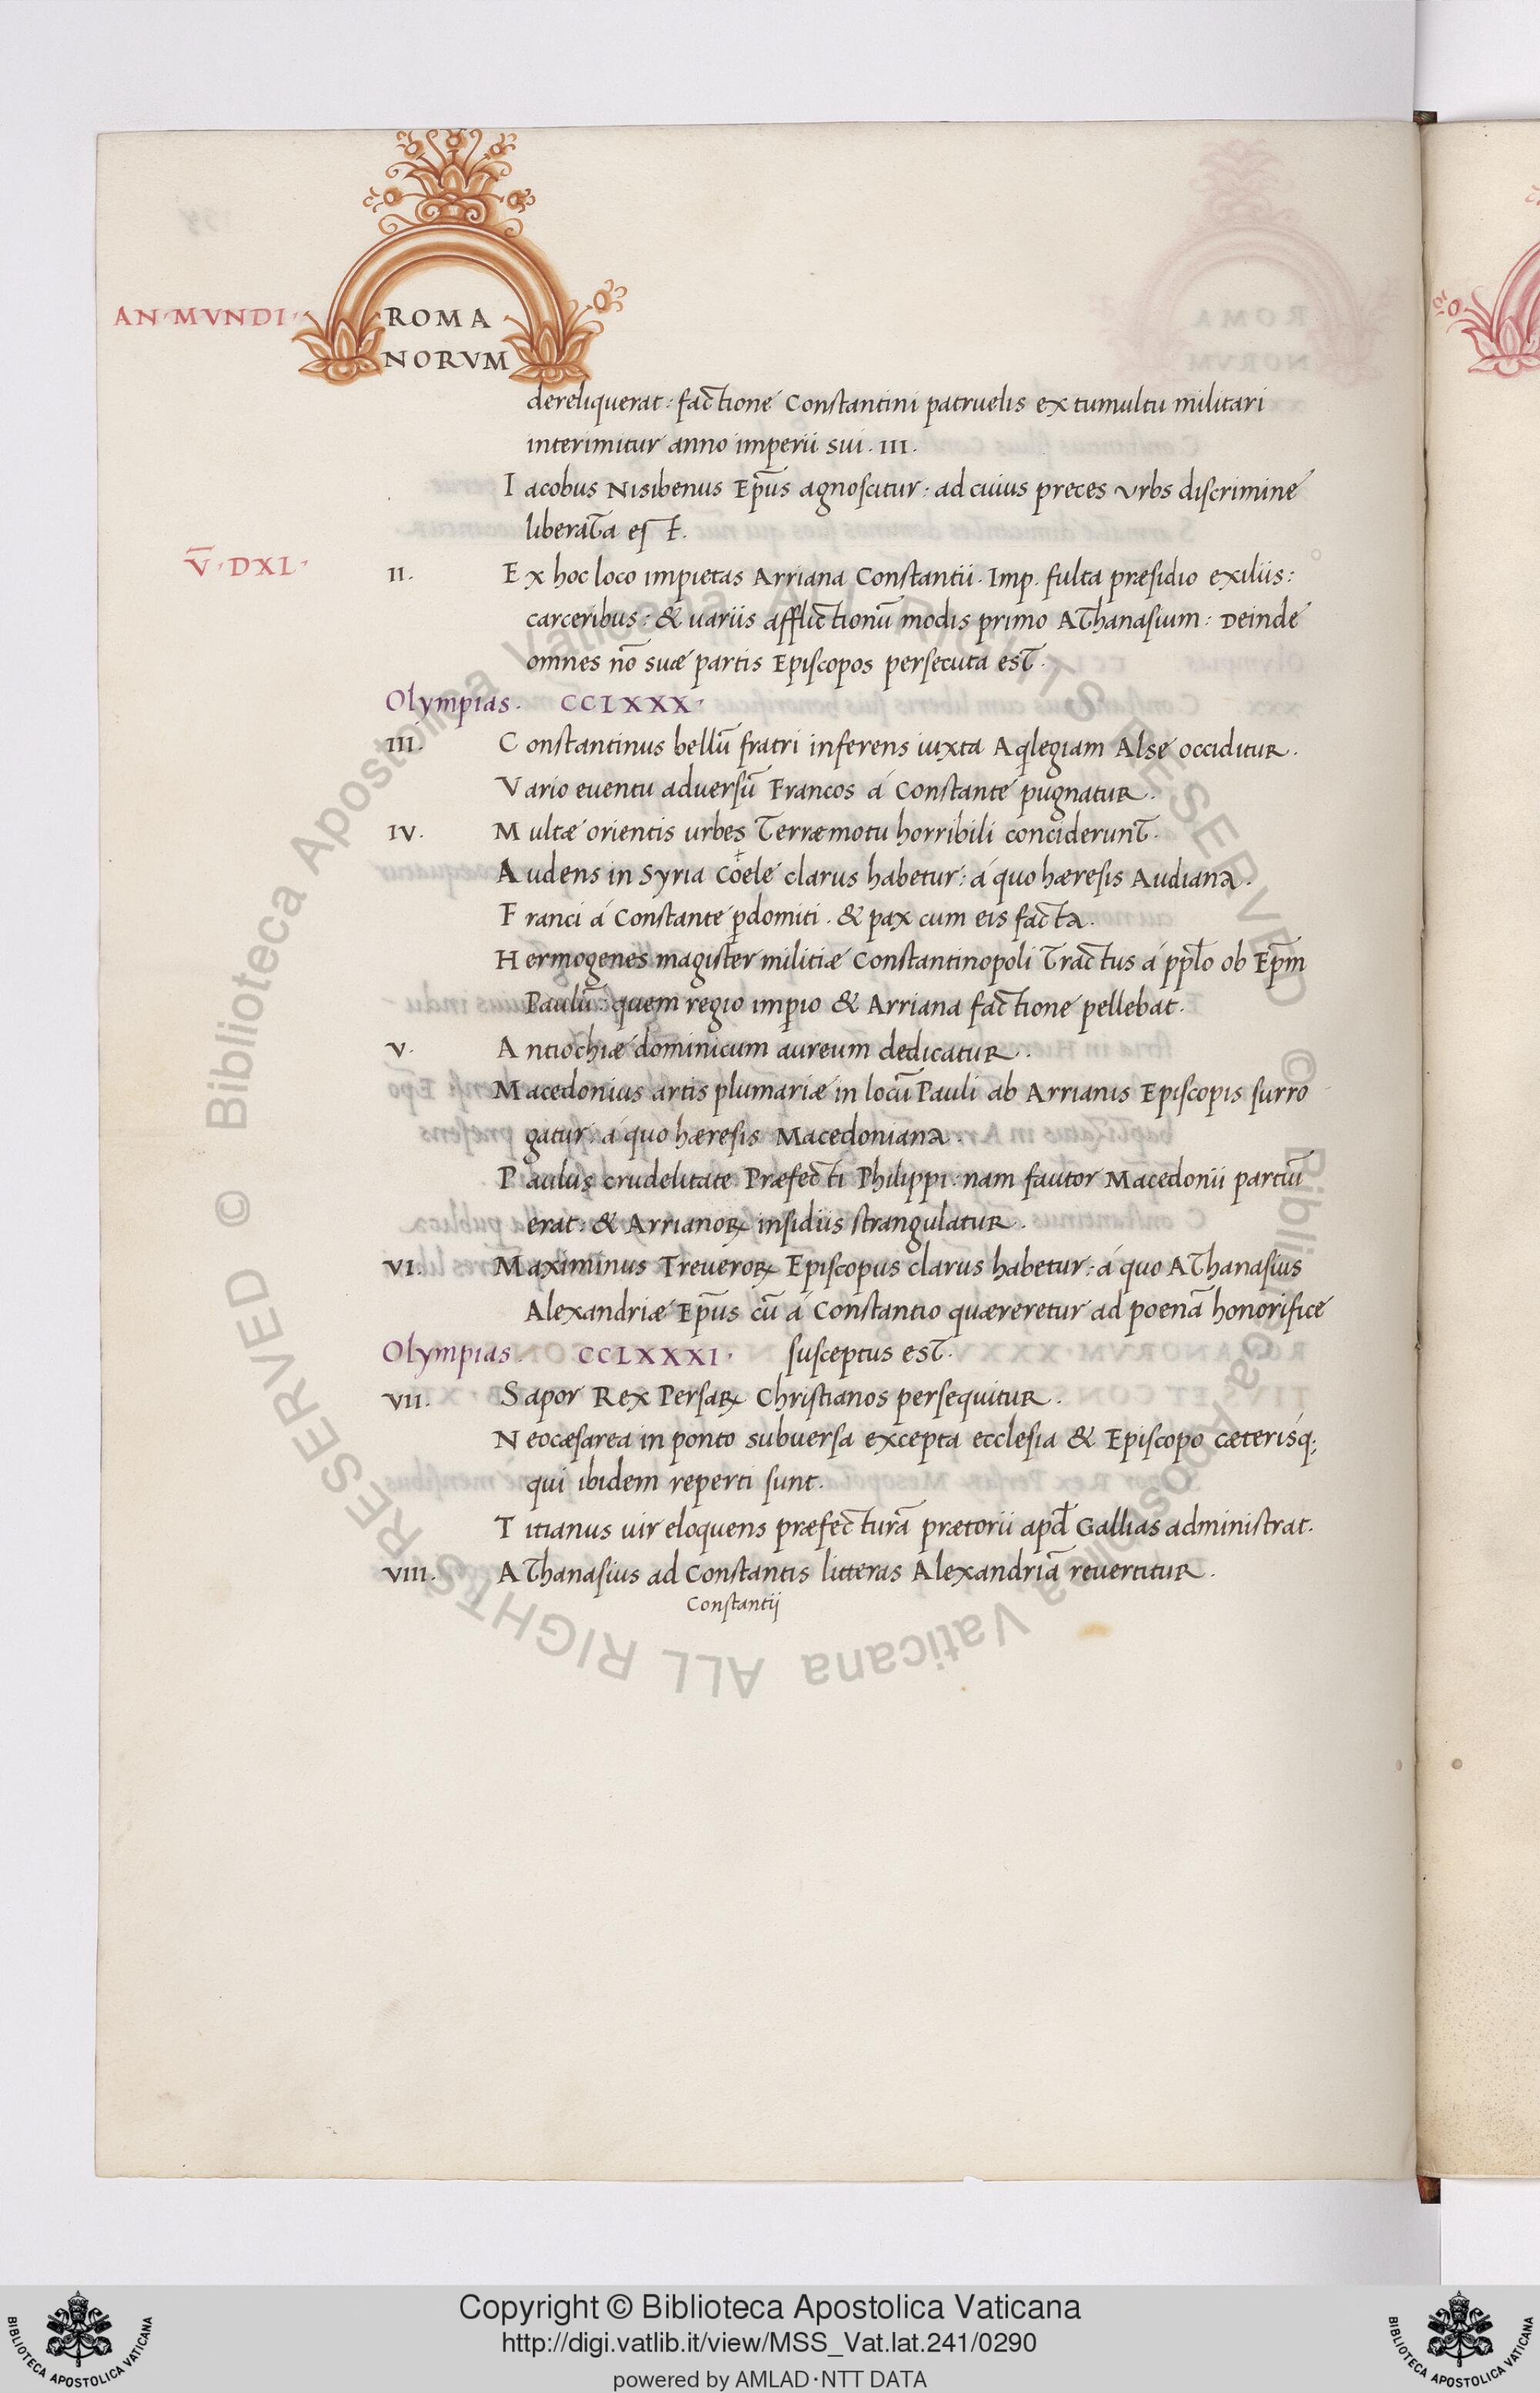 AN·MVNDI· ROMA
NORVM
dereliquerat: factione Constantini patruelis ex tumultu militari
interimitur anno imperii sui. III.
Iacobus Nisibenus Ep̄us agnoscitur: ad cuius preces Vrbs discrimine
liberata est.
V̄·DXL· II. Ex hoc loco impietas Arriana Constantii. Imp. fulta præsidio exiliis:
carceribus: & uariis afflictionū modis primo Athanasium: Deinde
omnes nō suæ partis Episcopos persecuta est.
Olympias. CCLXXX·
III. Constantinus bellū fratri inferens iuxta Aqlegiam Alse occiditur.
Vario euentu aduersū Francos á Constante pugnatur.
IV. Multæ orientis urbes Terræmotu horribili conciderunt.
Audens in Syria Coele clarus habetur: á quo hæresis Audiana.
Franci á Constante ꝑdomiti. & pax cum eis facta.
Hermogenes magister militiæ Constantinopoli Tractus á pplo ob Ep̄m
Paulū: quem regio imꝑio & Arriana factione pellebat.
V. Antiochiæ dominicum aureum dedicatur.
Macedonius artis plumariæ in locū Pauli ab Arrianis Episcopis surro
gatur: á quo hæresis Macedoniana.
Paulus crudelitate Præfecti Philippi: nam fautor Macedonii partiū
erat: & Arrianoꝝ insidiis strangulatur.
VI. Maximinus Treueroꝝ Episcopus clarus habetur: á quo Athanasius
Alexandriæ Ep̄us cū á Constantio quæreretur ad poenā honorifice
Olympias. CCLXXXI· susceptus est.
VII. Sapor Rex Persaꝝ Christianos persequitur.
Neocæsarea in ponto subuersa excepta ecclesia & Episcopo cæterisq;
qui ibidem reperti sunt.
Titianus uir eloquens præfecturā prætorii apd Gallias administrat.
VIII. Athanasius ad Constantis litteras Alexandriā reuertitur.
Constantij
Copyright © Biblioteca Apostolica Vaticana
http://digi.vatlib.it/view/MSS_Vat.lat.241/0290
powered by AMLAD·NTT DATA
BIBLIOTECA APOSTOLICA VATICANA
BIBLIOTECA APOSTOLICA VATICANA
© Biblioteca Apostolica Vaticana ALL RIGHTS RESERVED © Biblioteca Apostolica Vaticana ALL RIGHTS RESERVED